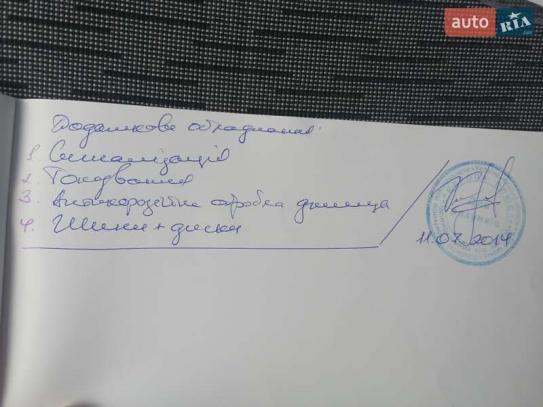 auto RIA .com
Додаткове обладнання:
1. Сигналізація
2. Тонування
3. Антикорозійна обробка днища
4. Шини + диски
11.07.2014